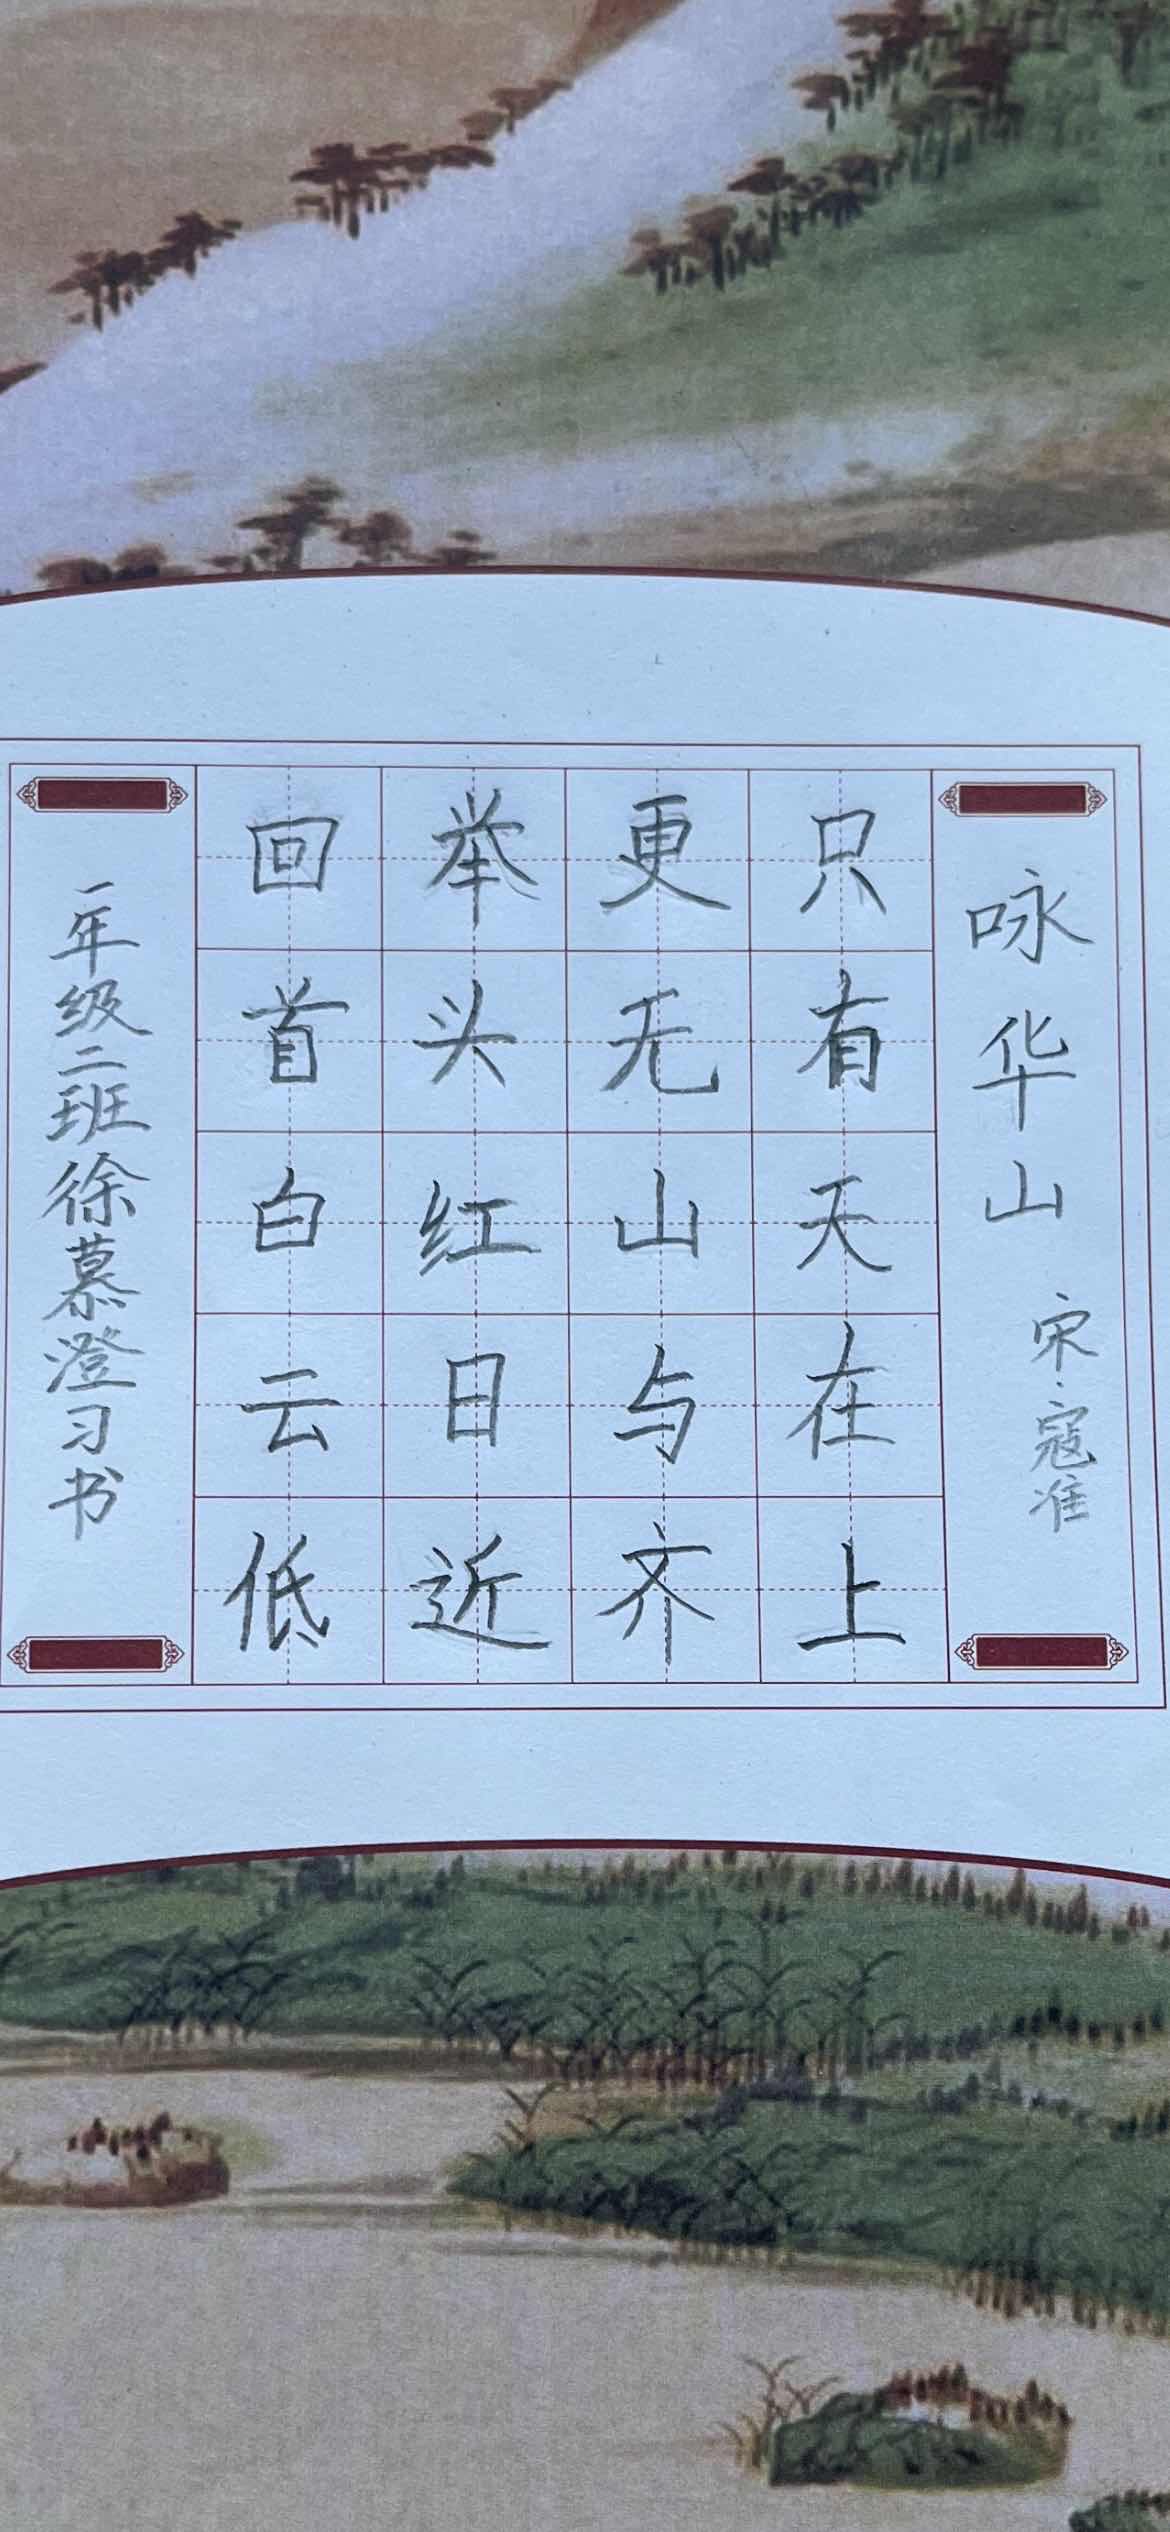 咏华山 宋·寇准
只有天在上
更无山与齐
举头红日近
回首白云低
一年级二班徐慕澄习书